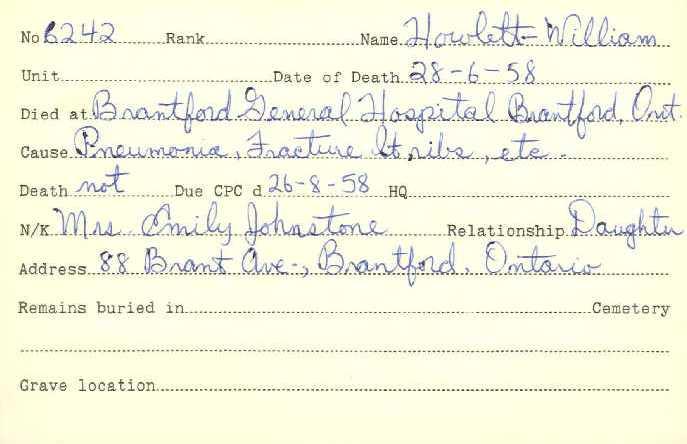 No 6242 Rank Name Howlett - William
Unit Date of Death 28-6-58
Died at Brantford General Hospital Brantford, Ont.
Cause Pneumonia, Fracture lt, ribs, etc.
Death not Due CPC d 26-8-58 HQ
N/K Mrs Emily Johnstone Relationship Daughter
Address 88 Brant Ave-, Brantford, Ontario
Remains buried in Cemetery
Grave location